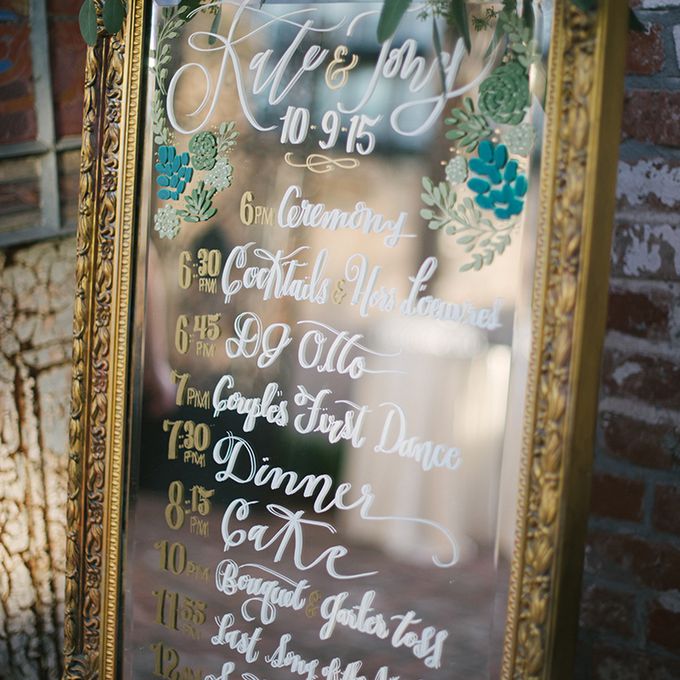 Kate & Tony
10·9·15
6PM Ceremony
6:30PM Cocktails & Hors L'oeuvres
6:45PM DJ Otto
7PM Couple's First Dance
7:30PM Dinner
8:15PM Cake
10PM Bouquet & Garter toss
11:55PM Last Song of the
12AM